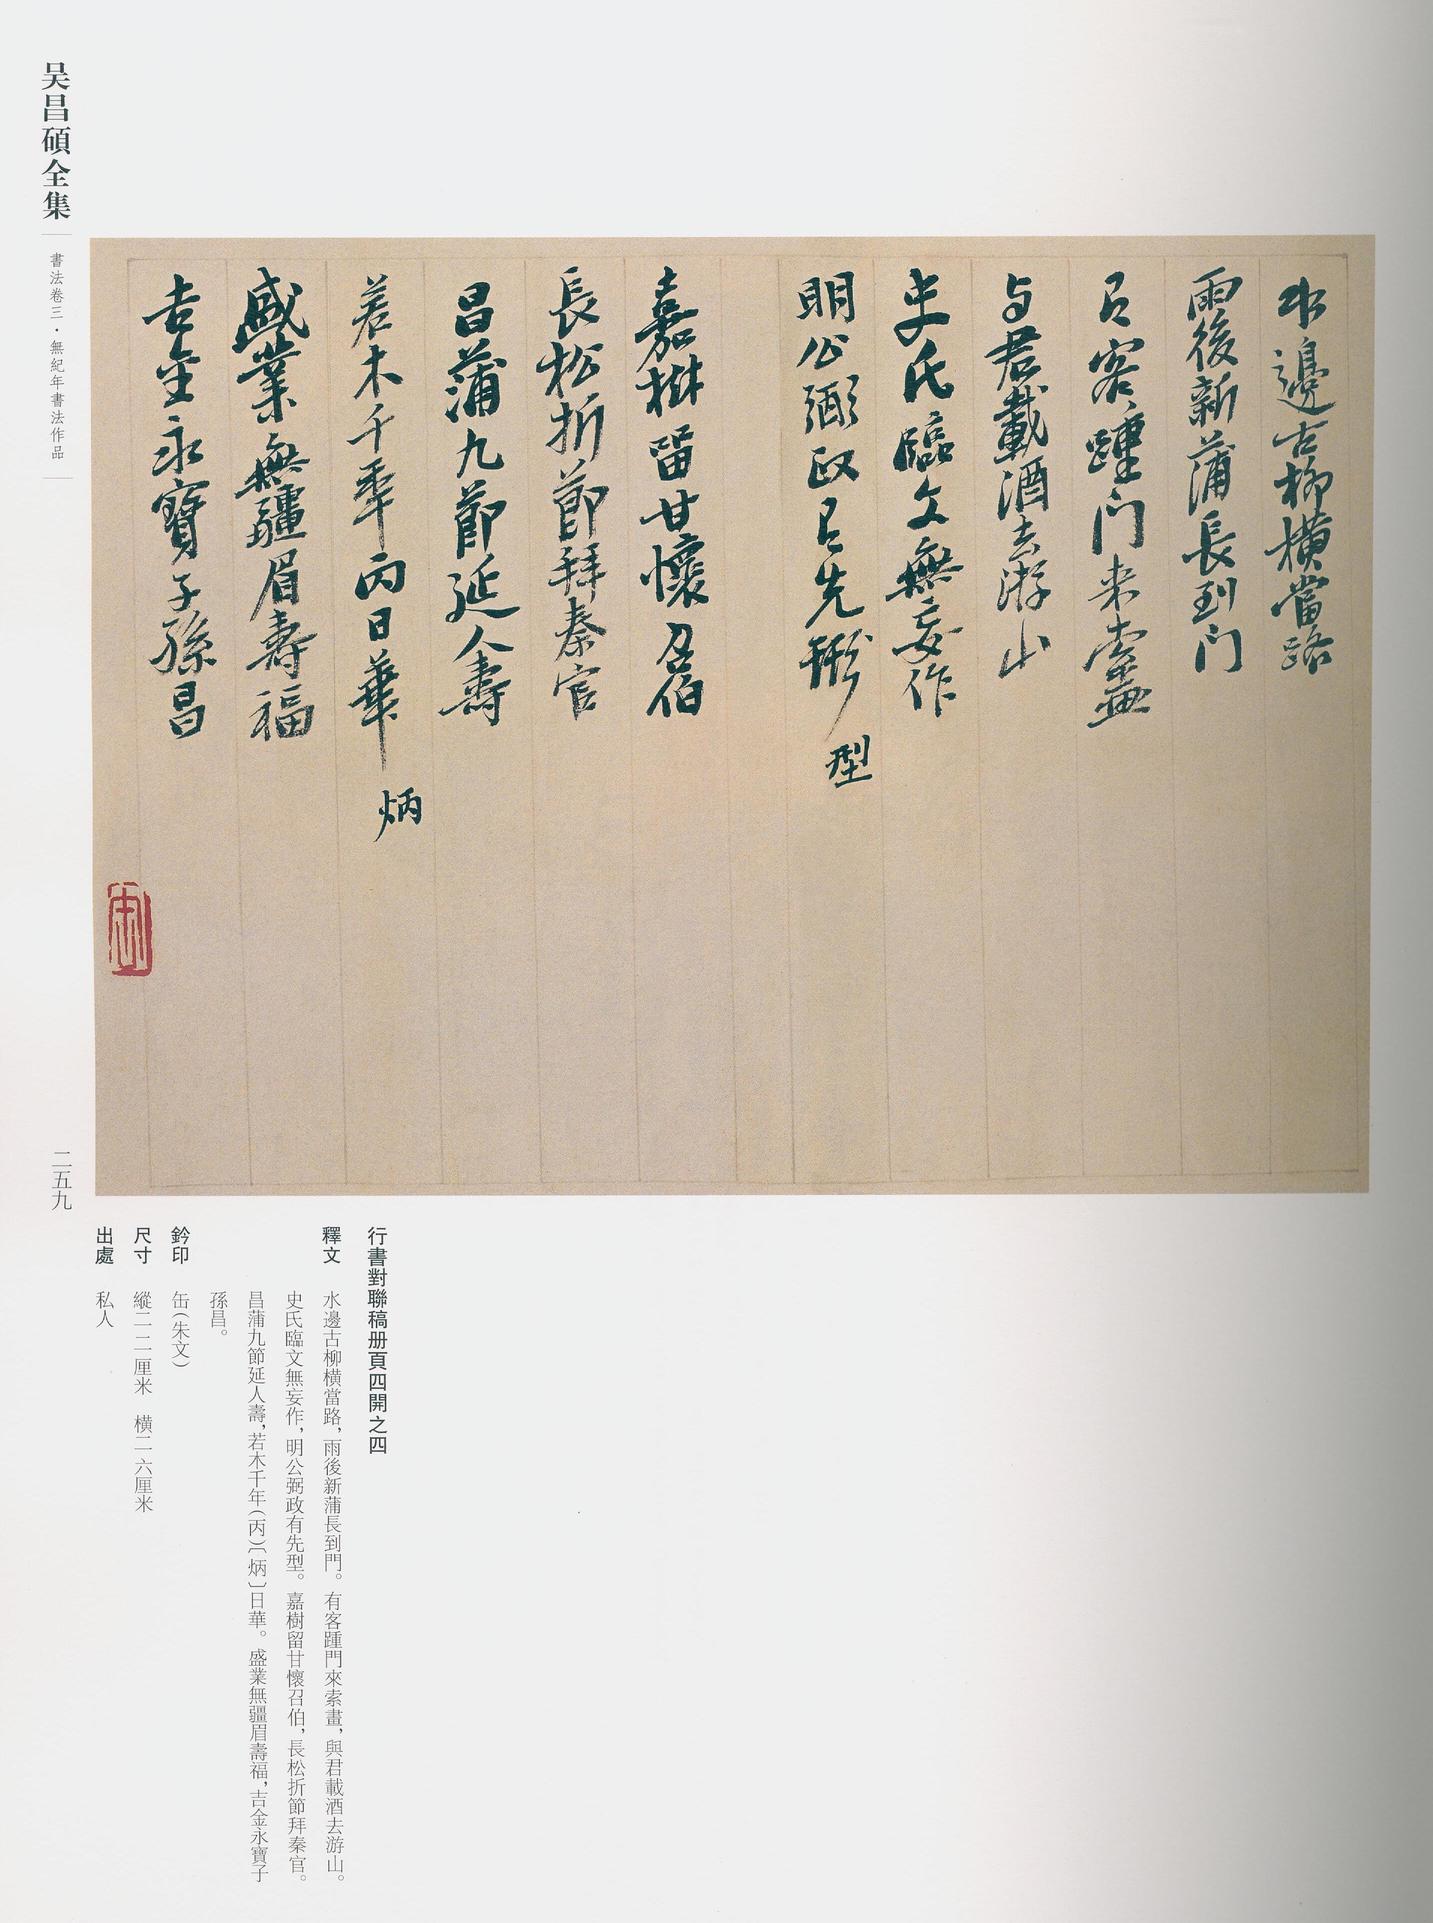 吴昌碩全集
書法卷三·無紀年書法作品
二五九
水邊古柳橫當路
雨後新蒲長到门
有客踵门来索畫
与君載酒去游山
史氏臨文無妄作
明公弼政有先型
型
嘉樹留甘懷召伯
長松折節拜秦官
昌蒲九節延人壽
若木千年丙日華
炳
盛業無疆眉壽福
吉金永寶子孫昌
缶
行書對聯稿册頁四開之四
釋文 水邊古柳橫當路，雨後新蒲長到門。有客踵門來索畫，與君載酒去游山。
史氏臨文無妄作，明公弼政有先型。嘉樹留甘懷召伯，長松折節拜秦官。
昌蒲九節延人壽，若木千年（丙）〔炳〕日華。盛業無疆眉壽福，吉金永寶子
孫昌。
鈐印 缶（朱文）
尺寸 縱二二厘米 橫二六厘米
出處 私人